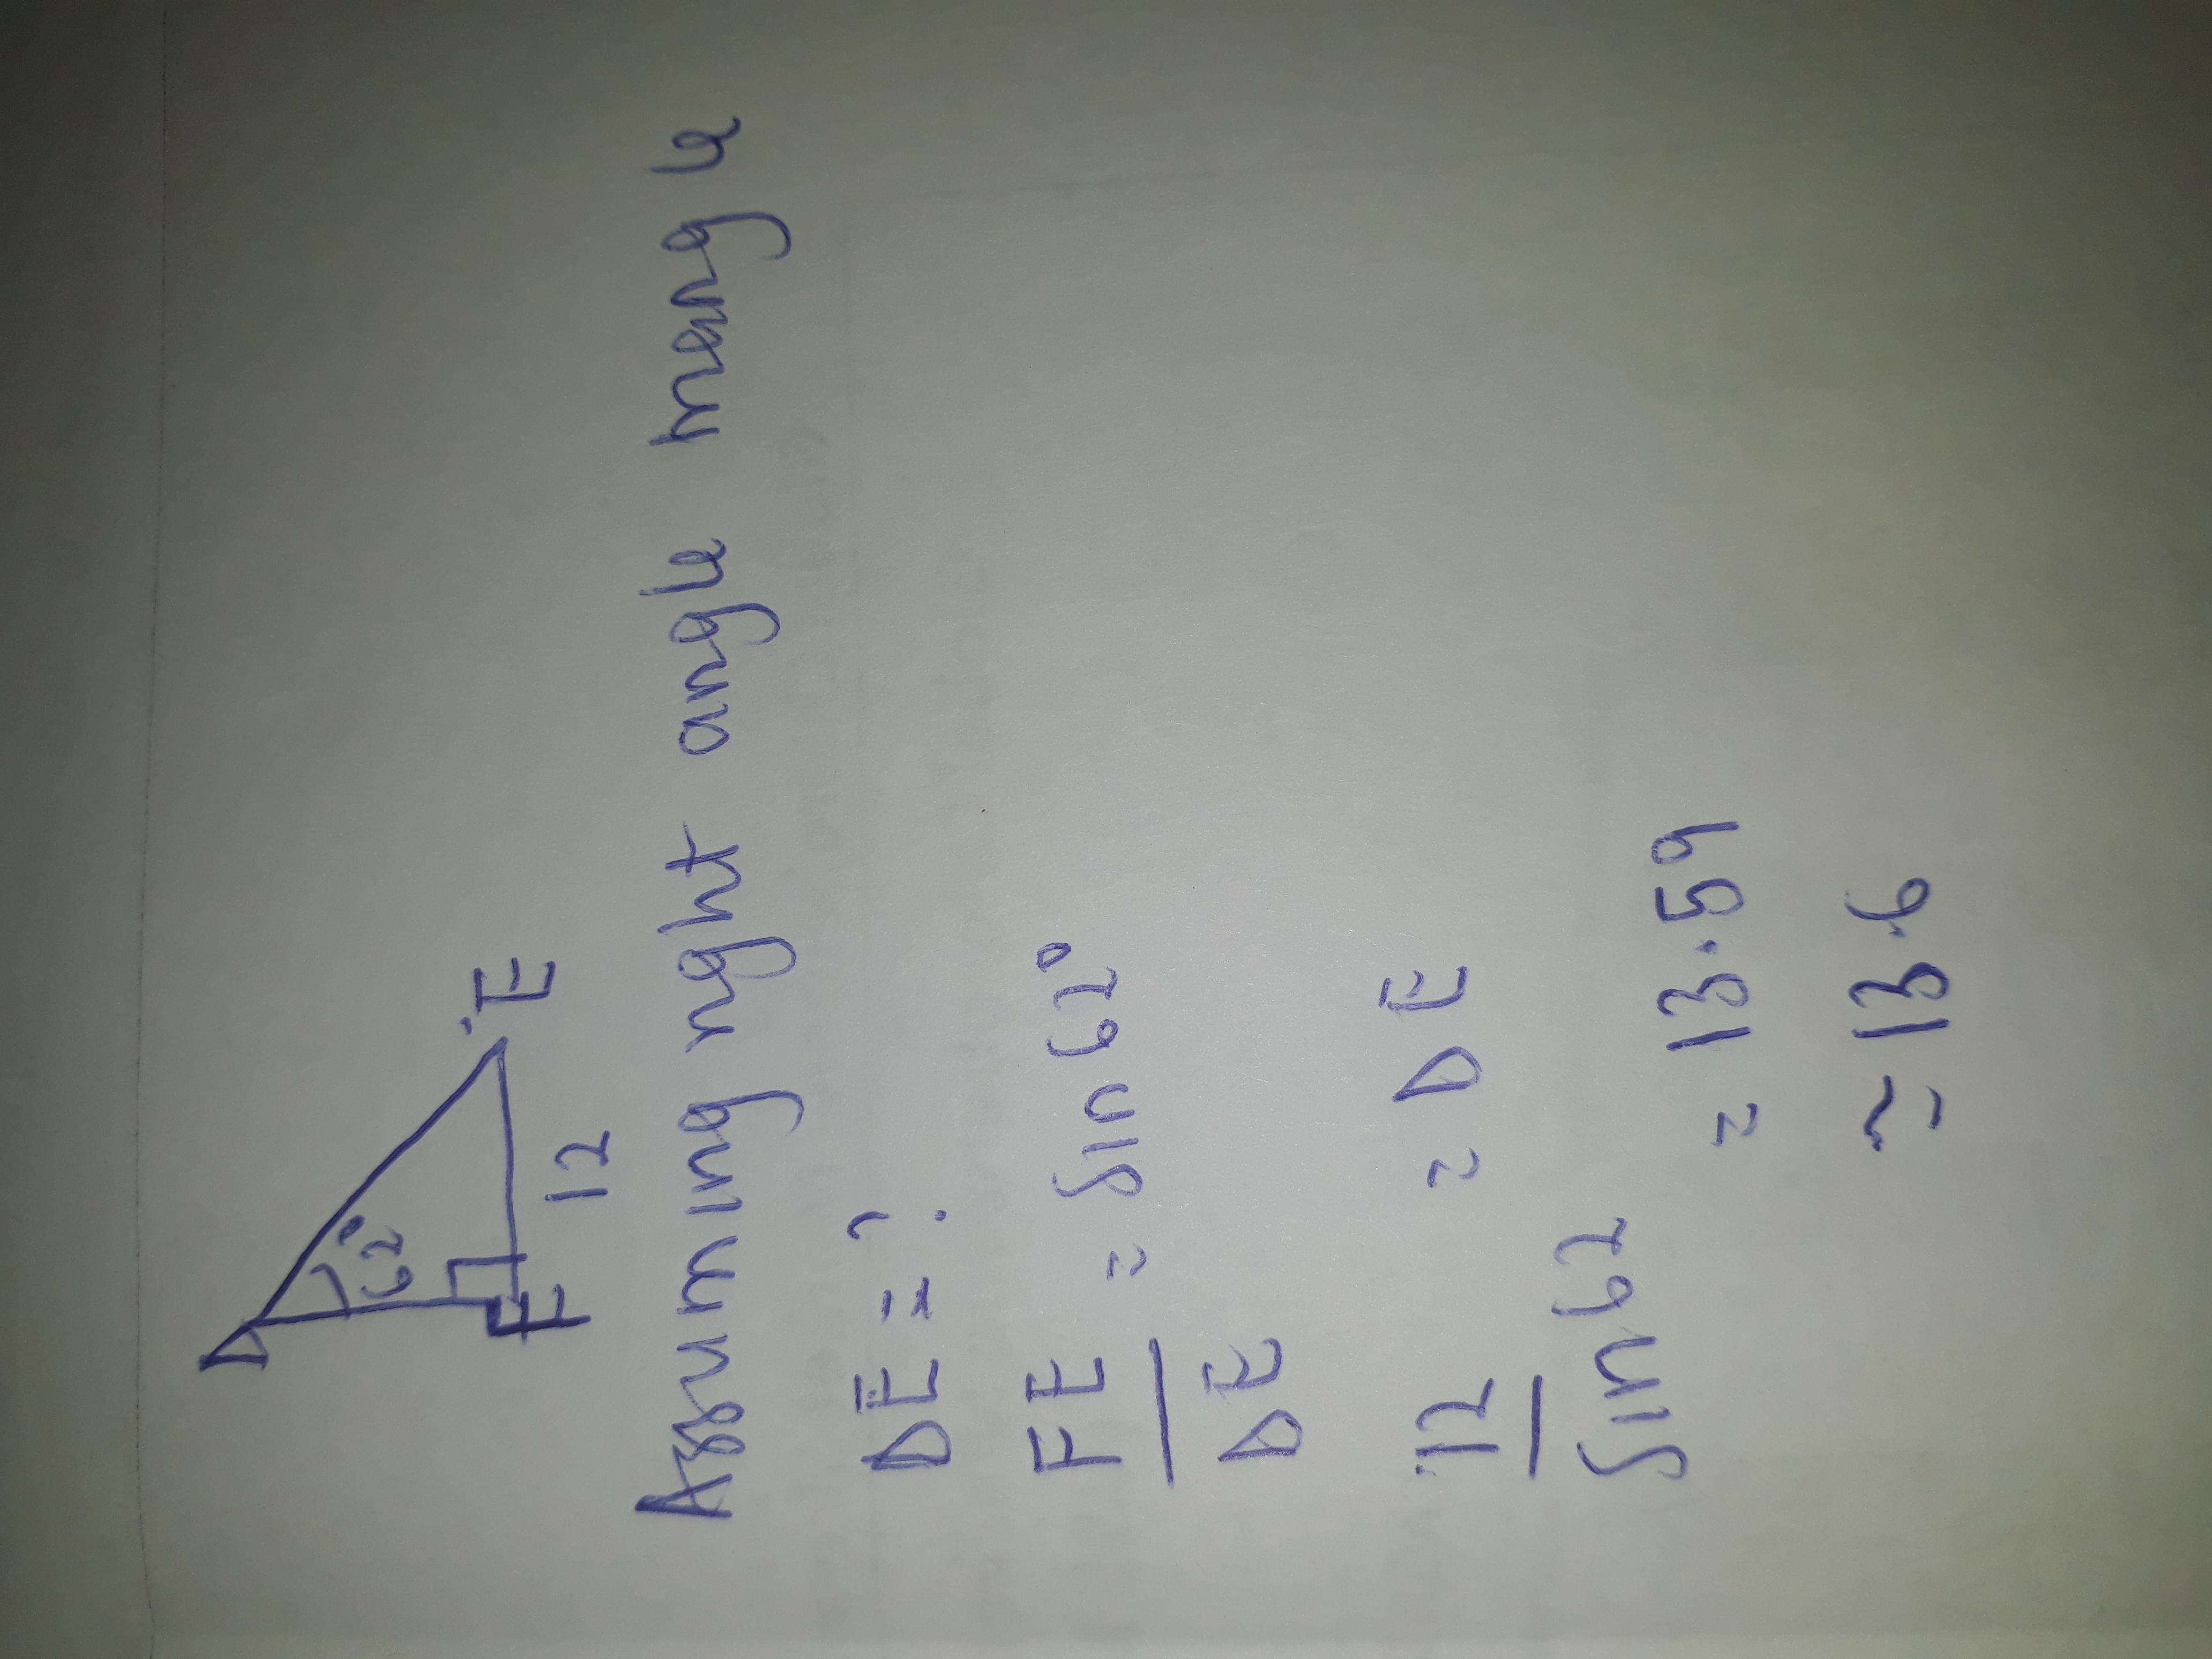 D
62°
F
E
12
Assuming right angle triangle
DE = ?
FE / DE = sin 62°
12 / sin 62 = DE
= 13.59
≈ 13.6